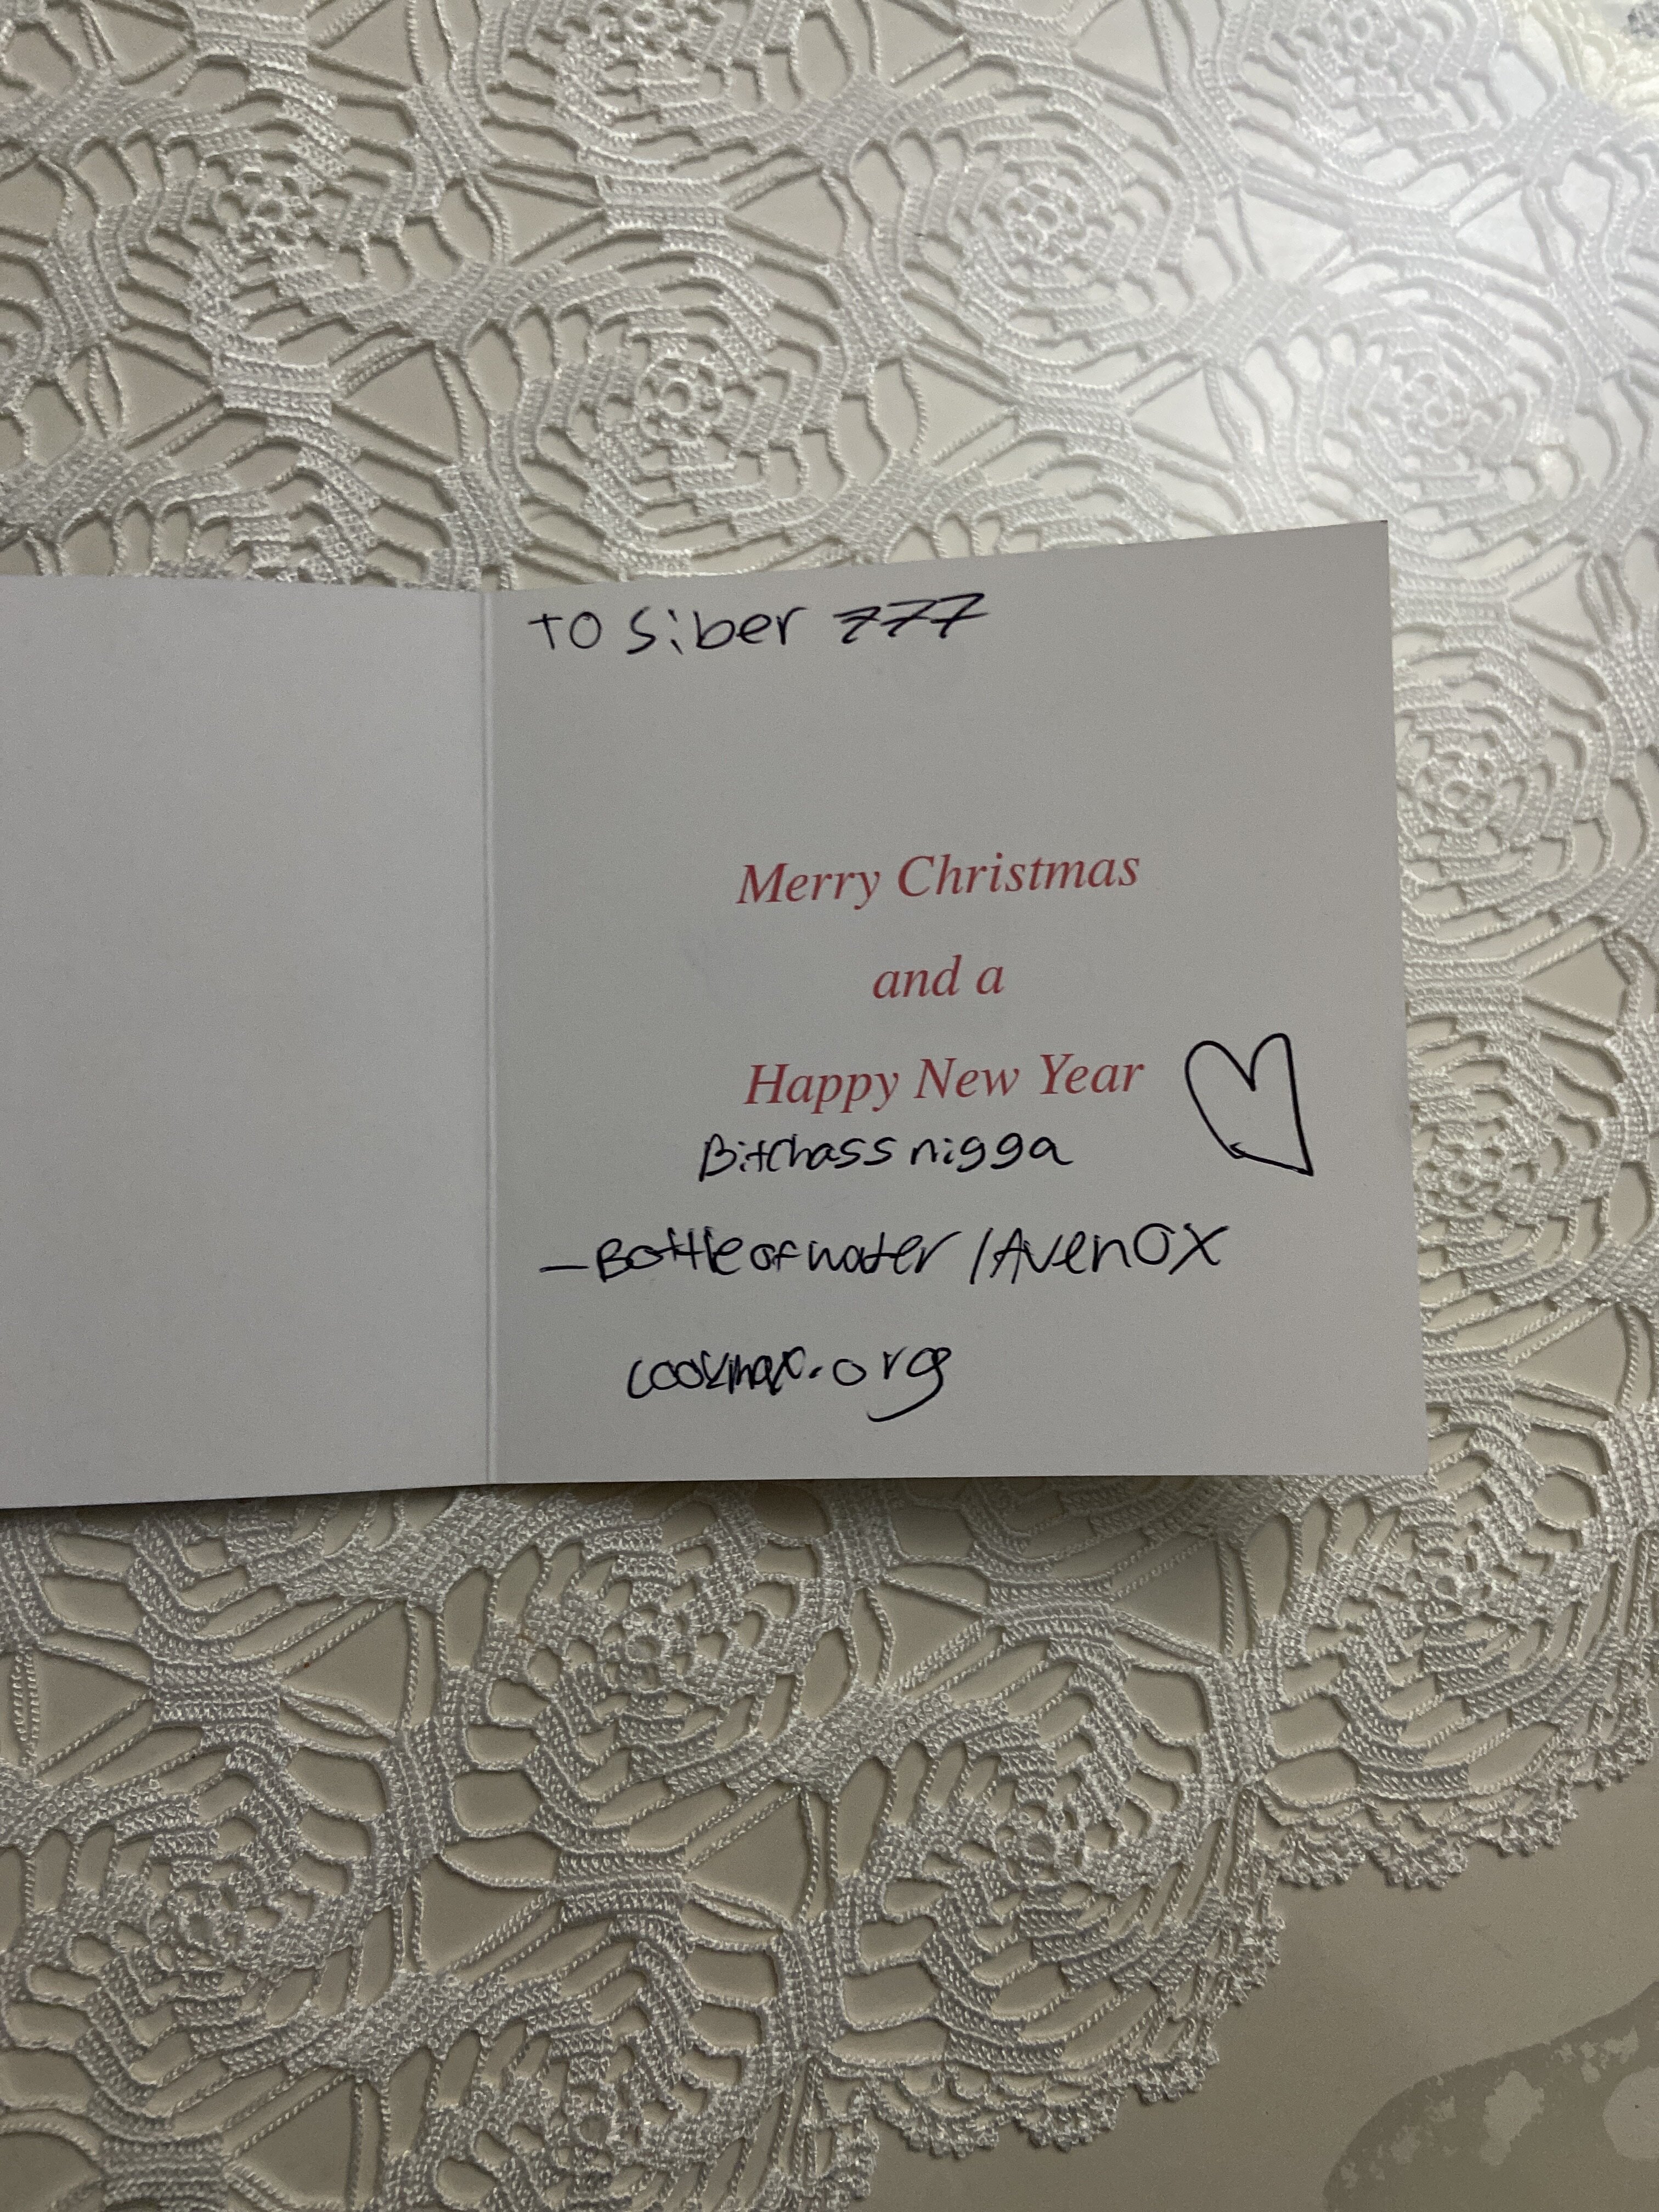 TO Siber 777
Merry Christmas
and a
Happy New Year
Bitchass nigga
-Bottleofwater /AvenOX